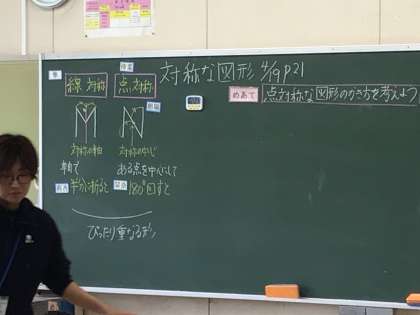 対称な図形 4/19 P21
線対称
点対称
めあて
点対称な図形のかき方を考えよう
対称の軸
対称の中心
軸で
ある点を中心にして
半分に折ると
180°回すと
ぴったり重なる形